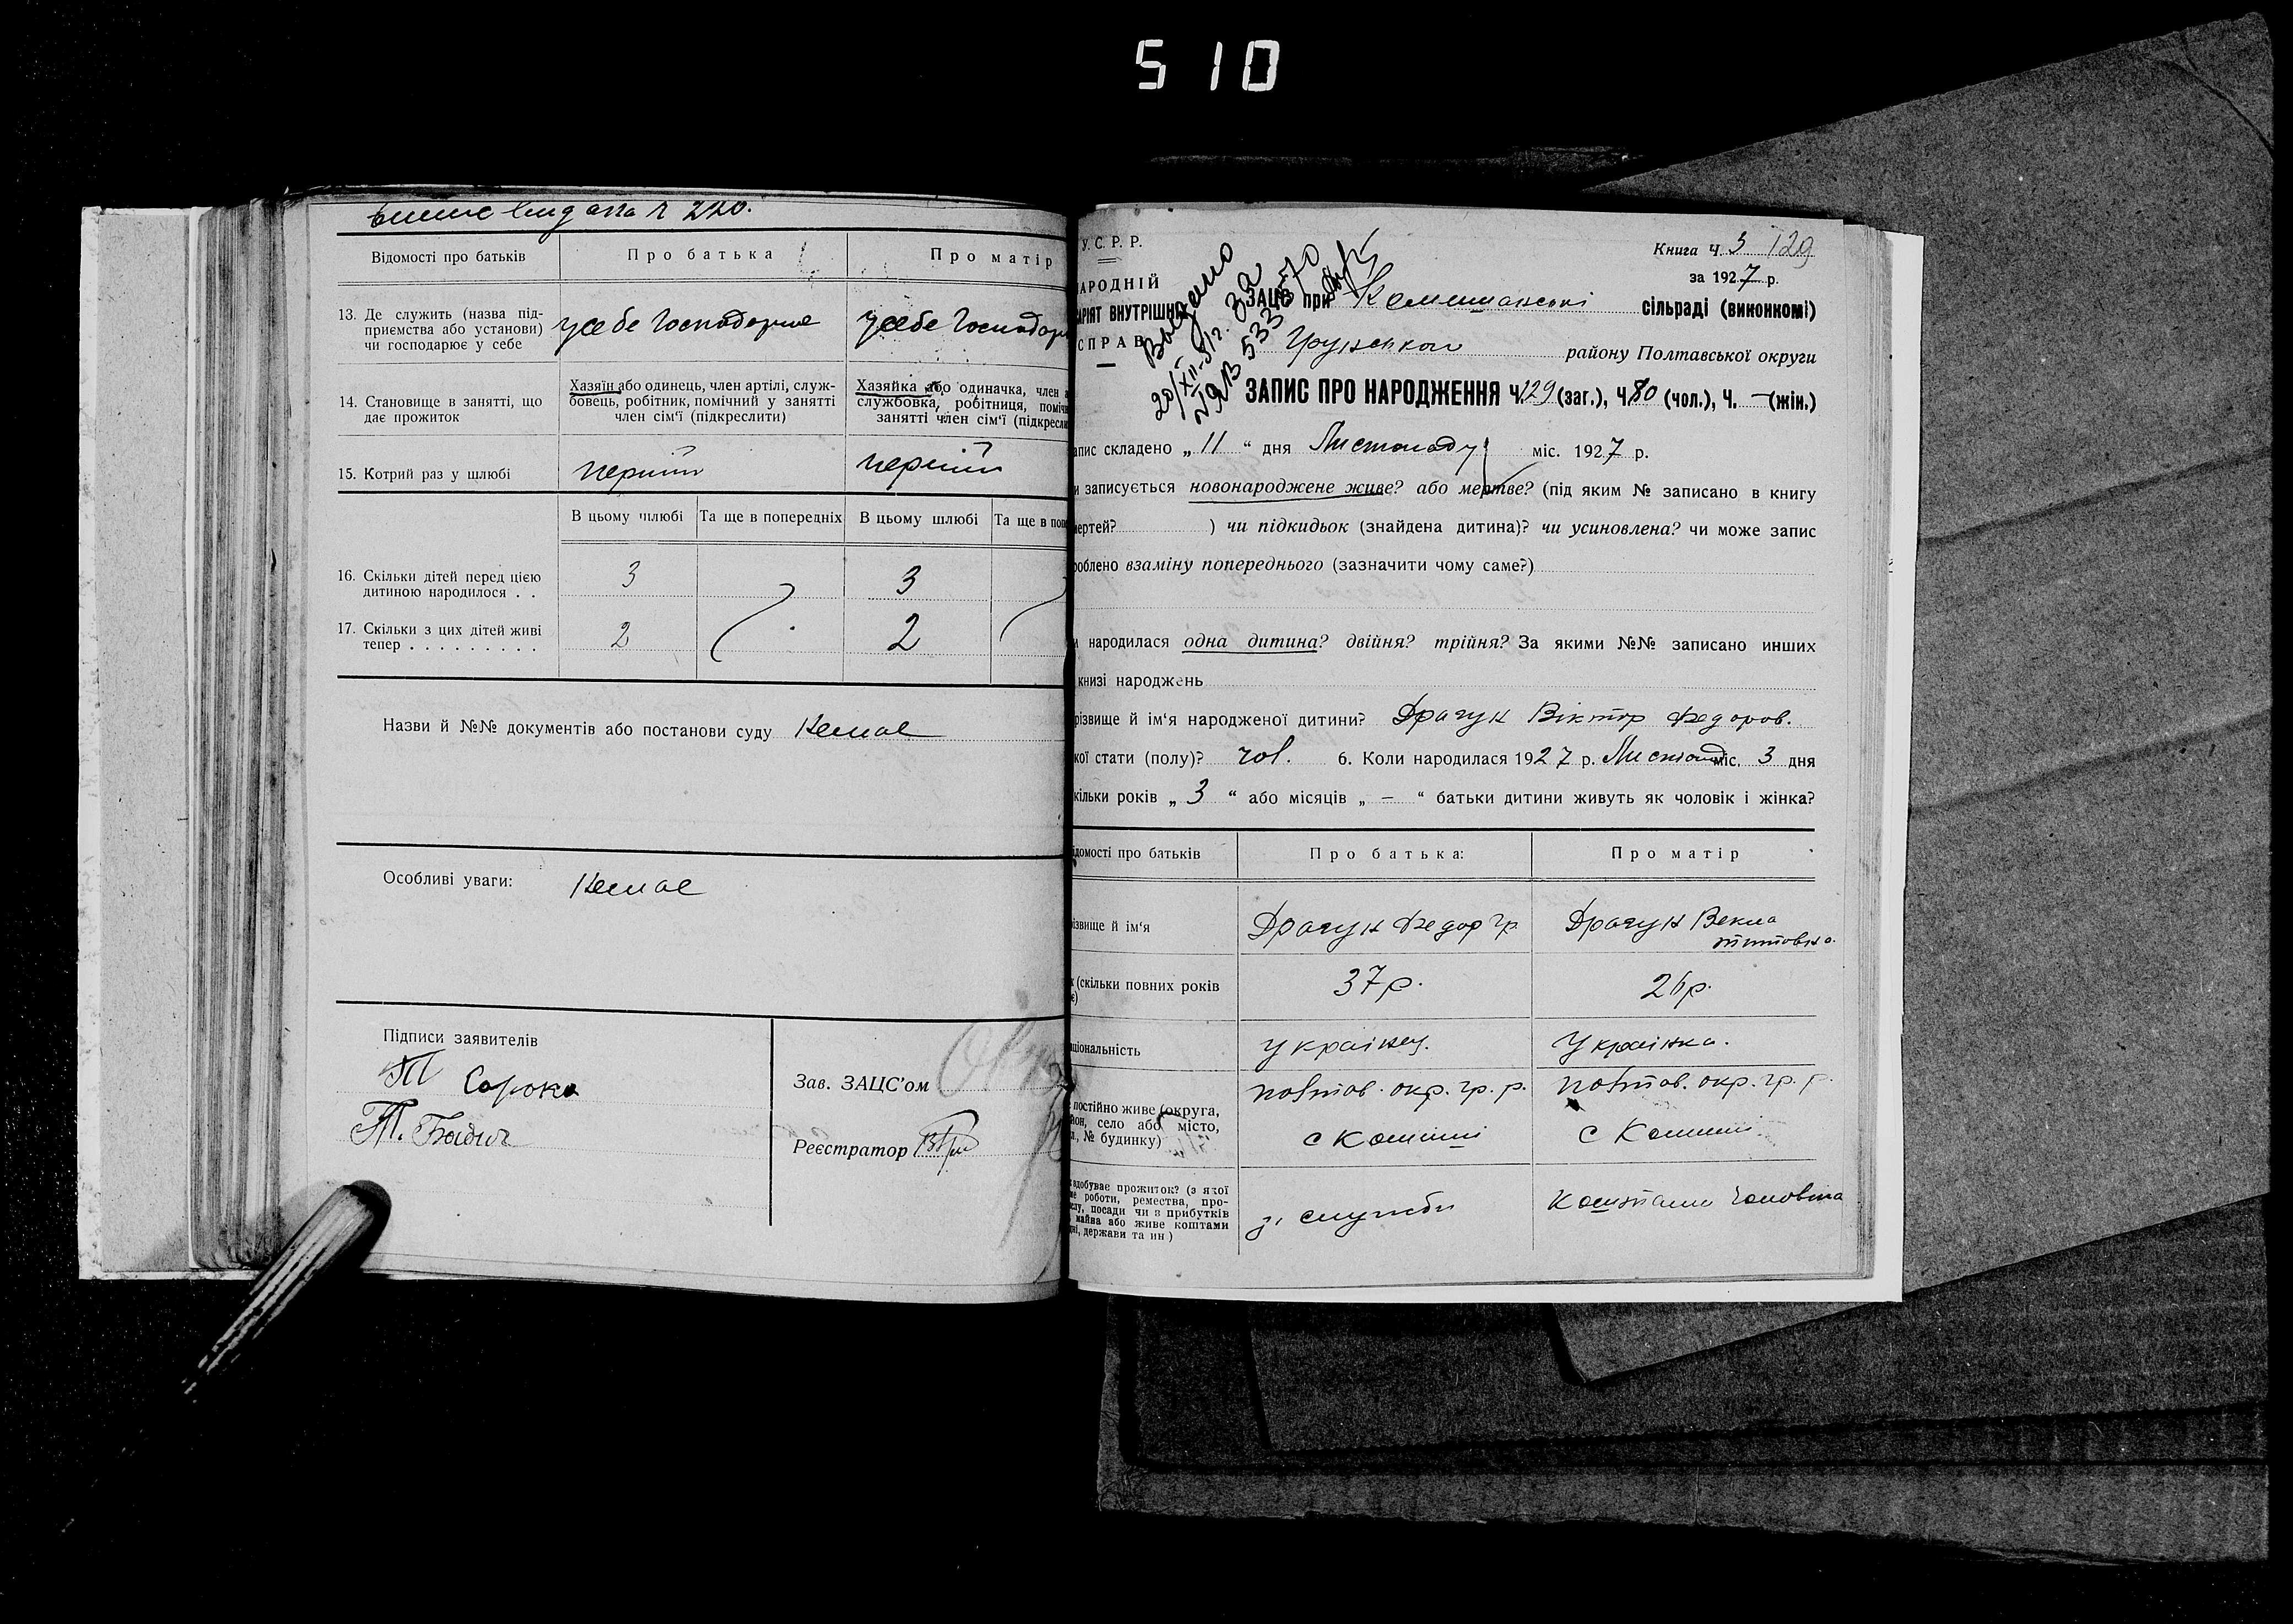 510
Відомості про батьків
Про батька
Про матір
13. Де служить (назва під-
приємства або установи)
чи господарює у себе
у себе господарює
у себе господарю
14. Становище в занятті, що
дає прожиток
Хазяїн або одинець, член артілі, служ-
бовець, робітник, помічний у занятті
член сім'ї (підкреслити)
Хазяйка або одиначка, член а
службовка, робітниця, поміч
занятті член сім'ї (підкресли
15. Котрий раз у шлюбі
перший
перший
В цьому шлюбі
Та ще в попередніх
В цьому шлюбі
Та ще в поп
16. Скільки дітей перед цією
дитиною народилося . .
3
3
17. Скільки з цих дітей живі
тепер . . . . . . . . .
2
2
Назви й №№ документів або постанови суду Немає
Особливі уваги: Немає
Підписи заявителів
Сорока
Зав. ЗАЦС'ом
Реєстратор
У. С. Р. Р.
Книга Ч. 3 129
за 1927 р.
АРОДНІЙ
АРІЯТ ВНУТРІШНІ
СПРАВ
ЗАЦС при Комишанські сільраді (виконкомі)
Грунського району Полтавської округи
Выдано
20/XII-51г. за
№ЯВ 533570
ЗАПИС ПРО НАРОДЖЕННЯ Ч.129 (заг.), Ч.80 (чол.), Ч. — (жін.)
апис складено „ 11 “ дня Листопаду міс. 1927 р.
и записується новонароджене живе? або мертве? (під яким № записано в книгу
мертей? ) чи підкидьок (знайдена дитина)? чи усиновлена? чи може запис
роблено взаміну попереднього (зазначити чому саме?)
и народилася одна дитина? двійня? трійня? За якими №№ записано инших
книзі народжень
різвище й ім'я народженої дитини? Драгун Віктор Федоров.
кої стати (полу)? чол. 6. Коли народилася 1927 р. Листопад міс. 3 дня
кільки років „ 3 “ або місяців „ — “ батьки дитини живуть як чоловік і жінка?
ідомості про батьків
Про батька:
Про матір
різвище й ім'я
Драгун Федор Гр.
Драгун Векла
Титовна.
к (скільки повних років
є)
37 р.
26 р.
аціональність
Українец.
Українка.
е постійно живе (округа,
йон, село або місто,
л., № будинку)
Полтав. окр. Гр. р.
с Комиші
Полтав. окр. Гр. р.
с Комиші
к здобуває прожиток? (з якої
ме роботи, ремества, про-
слу, посади чи з прибутків
майва або живе коштами
дні, держави та ин)
зі служби
Коштами чоловіка